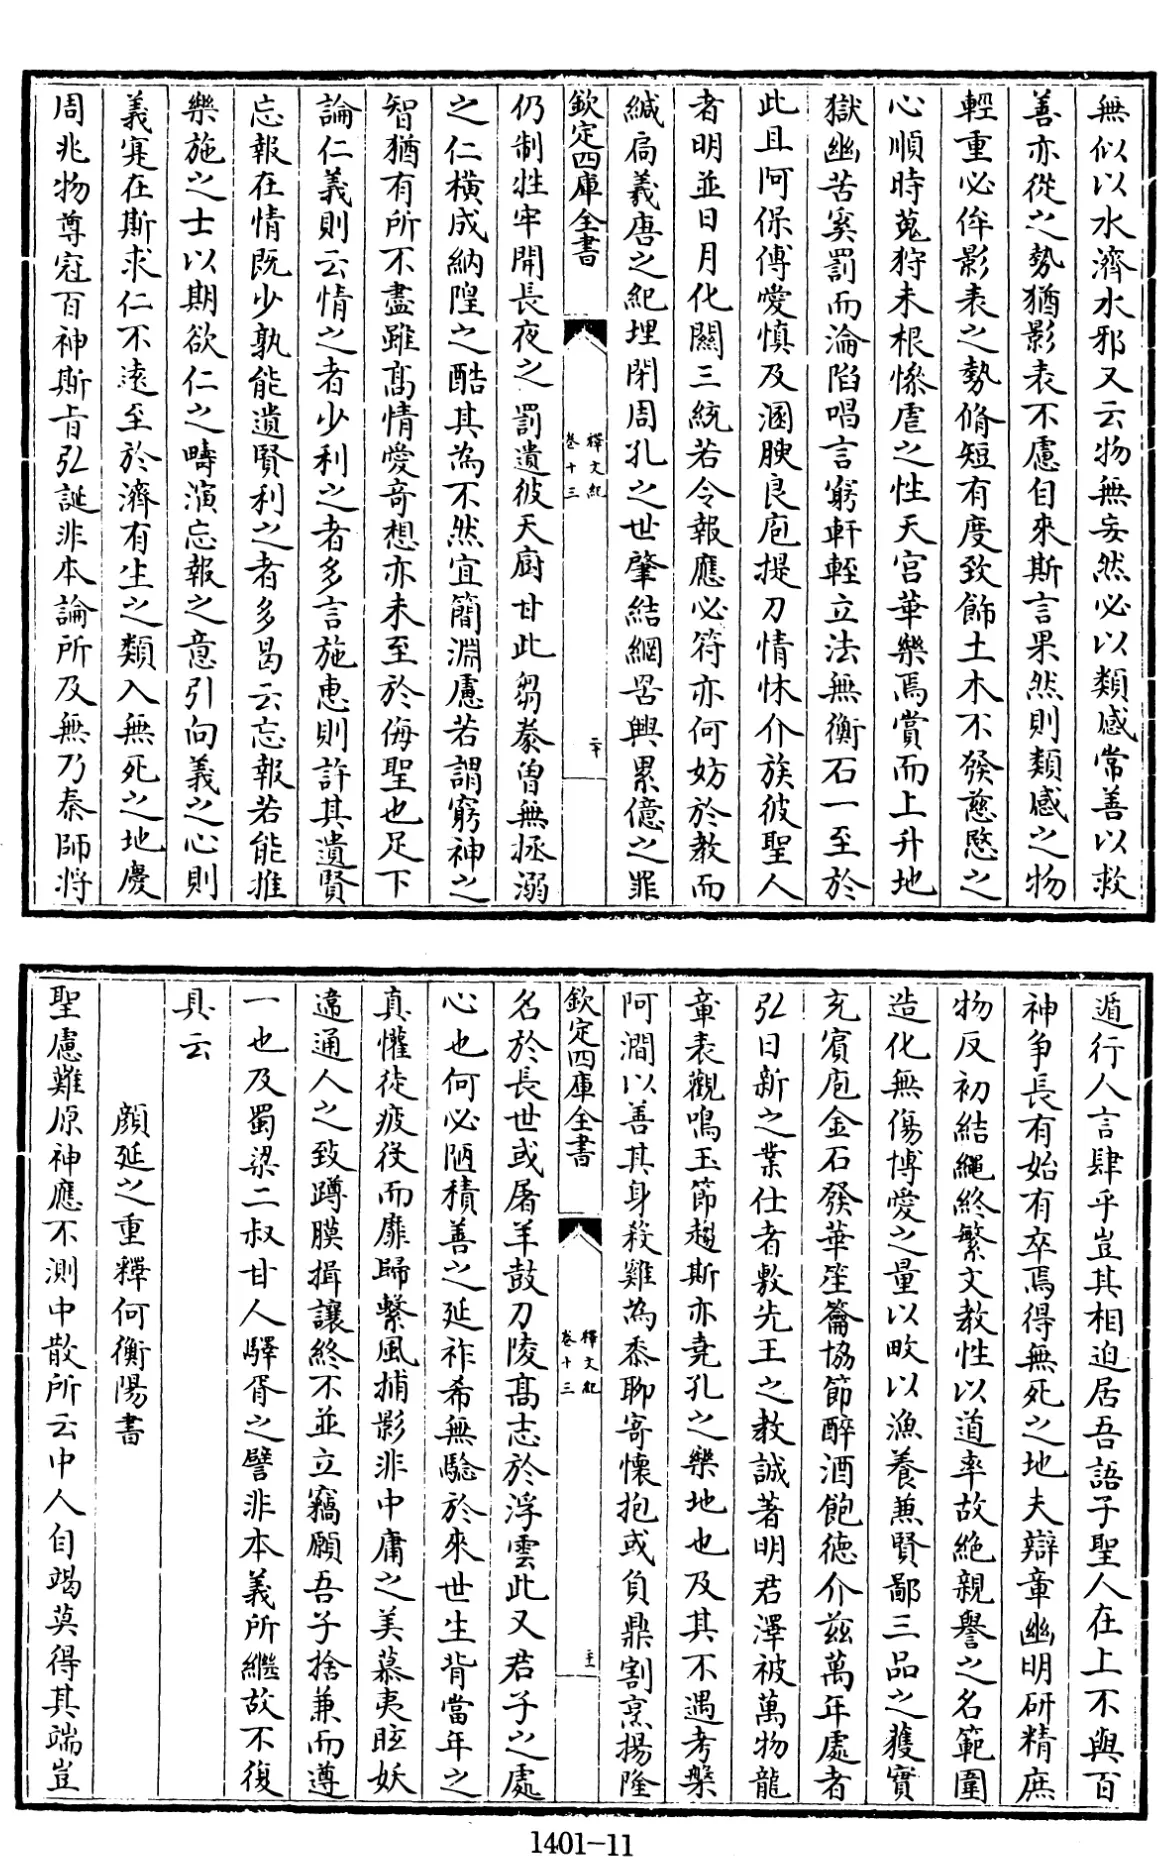 無似以水濟水邪又云物無妄然必以類感常善以救
善亦從之勢猶影表不慮自來斯言果然則類感之物
輕重必侔影表之勢脩短有度致飾土木不發慈愍之
心順時蒐狩未根慘虐之性天宮華樂焉賞而上升地
獄幽苦奚罰而淪陷唱言窮軒輊立法無衡石一至於
此且阿保傅愛慎及溷腴良庖提刀情怵介族彼聖人
者明並日月化關三統若令報應必符亦何妨於教而
緘扃羲唐之紀埋閉周孔之世肇結網罟興累億之罪
欽定四庫全書
釋文紀
卷十三
二十
仍制牲牢開長夜之罰遺彼天廚甘此芻豢曾無拯溺
之仁橫成納隍之酷其為不然宜簡淵慮若謂窮神之
智猶有所不盡雖高情愛奇想亦未至於侮聖也足下
論仁義則云情之者少利之者多言施惠則許其遺賢
忘報在情既少孰能遺賢利之者多曷云忘報若能推
樂施之士以期欲仁之疇演忘報之意引向義之心則
義寔在斯求仁不遠至於濟有生之類入無死之地慶
周兆物尊冠百神斯旨弘誕非本論所及無乃秦師將
遁行人言肆乎豈其相迫居吾語子聖人在上不與百
神争長有始有卒焉得無死之地夫辯章幽明研精庶
物反初結繩終繁文教性以道率故絶親譽之名範圍
造化無傷博愛之量以畋以漁養兼賢鄙三品之獲實
充賓庖金石發華笙籥協節醉酒飽德介茲萬年處者
弘日新之業仕者敷先王之教誠著明君澤被萬物龍
章表觀鳴玉節趨斯亦堯孔之樂地也及其不遇考槃
阿澗以善其身殺雞為黍聊寄懷抱或負鼎割烹揚隆
欽定四庫全書
釋文紀
卷十三
主
名於長世或屠羊鼓刀陵高志於浮雲此又君子之處
心也何必陋積善之延祚希無驗於來世生背當年之
真懽徒疲役而靡歸繫風捕影非中庸之美慕夷眩妖
違通人之致蹲膜揖讓終不並立竊願吾子捨兼而遵
一也及蜀梁二叔甘人驛胥之譬非本義所繼故不復
具云
顔延之重釋何衡陽書
聖慮難原神應不測中散所云中人自竭莫得其端豈
1401-11